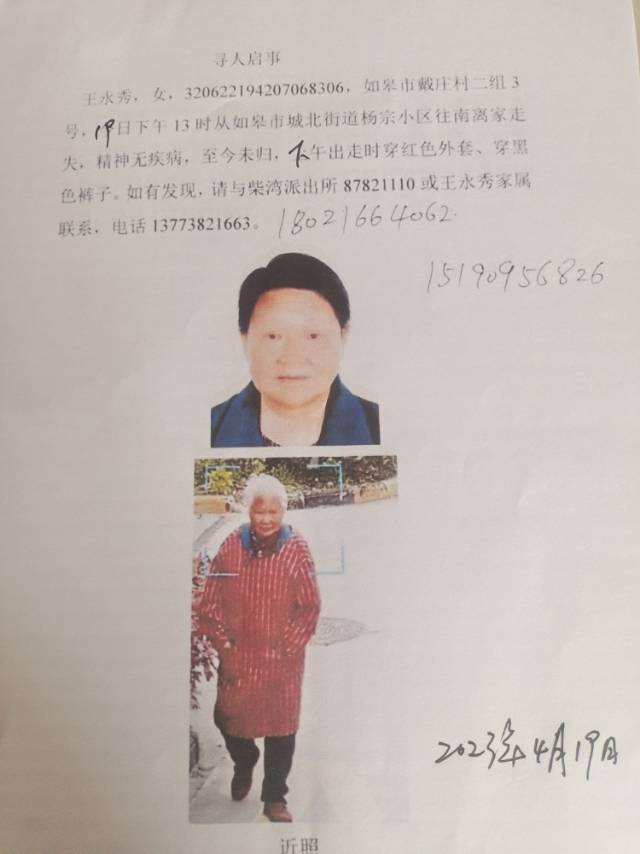 寻人启事
王永秀，女，320622194207068306，如皋市戴庄村二组 3
号，19日下午 13 时从如皋市城北街道杨宗小区往南离家走
失，精神无疾病，至今未归，下午出走时穿红色外套、穿黑
色裤子。如有发现，请与柴湾派出所 87821110 或王永秀家属
联系，电话 13773821663。 18021664062.
15190956826
2023年4月19日
近照